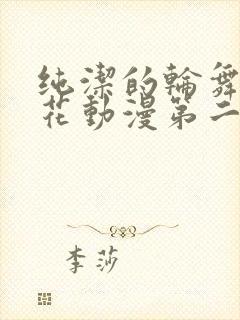 纯潔的輪舞
花動漫第二
李莎